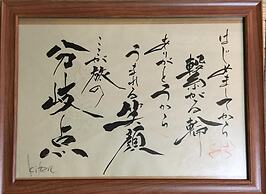 はじめましてから
繋がる輪
ありがとうから
うまれる笑顔
ここが旅の
分岐点